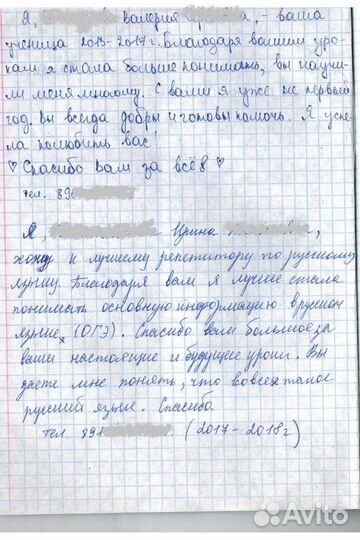 Я, Валерия, - ваша
ученица 2015-2017 г. Благодаря вашим уро-
кам я стала больше понимать, вы научи-
ли меня многому. С вами я уже не первый
год. Вы всегда добры и готовы помочь. Я успе-
ла полюбить вас!
♡ Спасибо Вам за всё! ♡
тел. 896
Я, Ирина,
хожу к лучшему репетитору по русскому
языку. Благодаря вам я лучше стала
понимать основную информацию в русском
языке (ОГЭ). Спасибо вам большое за
ваши настоящие и будущее уроки. Вы
даете мне понять, что вовсе такое
русский язык. Спасибо.
тел. 891 (2017-2018г)
Avito